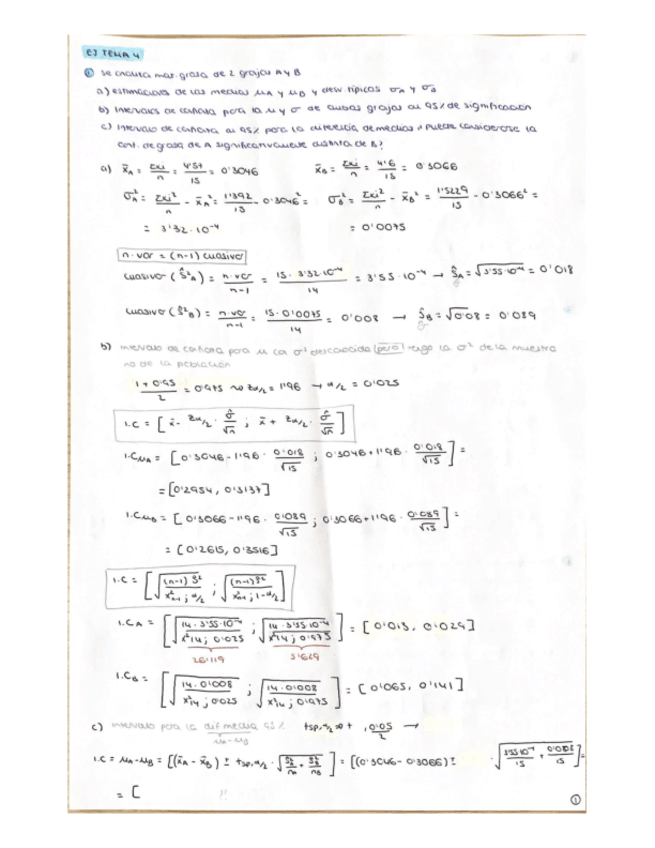 EJ TEMA 4
① Se analiza mat. grasa de 2 granjas A y B
a) estimaciones de las medias μA y μB y desv típicas σA y σB
b) Intervalos de confianza para la μ y σ de ambas granjas al 95% de significación
c) Intervalo de confianza al 95% para la diferencia de medias ¿ Puede considerarse la
cant. de grasa de A significativamente distinta de B?
a) x̄A = Σxi/n = 4'57/15 = 0'3046 x̄B = Σxi/n = 4'6/15 = 0'3066
σ²A = Σxi²/n - x̄A² = 1'392/15 - 0'3046² = σ²B = Σxi²/n - x̄B² = 1'5229/15 - 0'3066² =
= 3'32·10⁻⁴ = 0'0075
n·var = (n-1) cuasivar
cuasivar (Ŝ²A) = n·var/n-1 = 15·3'32·10⁻⁴/14 = 3'55·10⁻⁴ → ŜA = √3'55·10⁻⁴ = 0'018
cuasivar (Ŝ²B) = n·var/n-1 = 15·0'0075/14 = 0'008 → ŜB = √0'08 = 0'089
b) Intervalo de confianza para μ con σ² desconocida (pero) tengo la σ² de la muestra
no de la población
1+0'95/2 = 0'975 → Zα/2 = 1'96 → α/2 = 0'025
I.C = [x̄ - Zα/2 · σ̂/√n ; x̄ + Zα/2 · σ̂/√n]
I.CμA = [0'3046 - 1'96 · 0'018/√15 ; 0'3046 + 1'96 · 0'018/√15] =
= [0'2954, 0'3137]
I.CμB = [0'3066 - 1'96 · 0'089/√15 ; 0'3066 + 1'96 · 0'089/√15] =
= [0'2615, 0'3516]
I.C = [√(n-1)Ŝ²/χ²n-1; α/2 ; √(n-1)Ŝ²/χ²n-1; 1-α/2]
I.CA = [√14·3'55·10⁻⁴/χ²14; 0'025 ; √14·3'55·10⁻⁴/χ²14; 0'975] = [0'013, 0'029]
26'119 5'629
I.CB = [√14·0'008/χ²14; 0'025 ; √14·0'008/χ²14; 0'975] = [0'065, 0'141]
c) Intervalo para la dif media 95% tsp, α/2 → t , 0'05/2 →
μA-μB
I.C = μA-μB = [(x̄A - x̄B) ± tsp, α/2 · √Ŝ²A/nA + Ŝ²B/nB] = [(0'3046 - 0'3066) ± · √3'55·10⁻⁴/15 + 0'008/15] =
= [
①